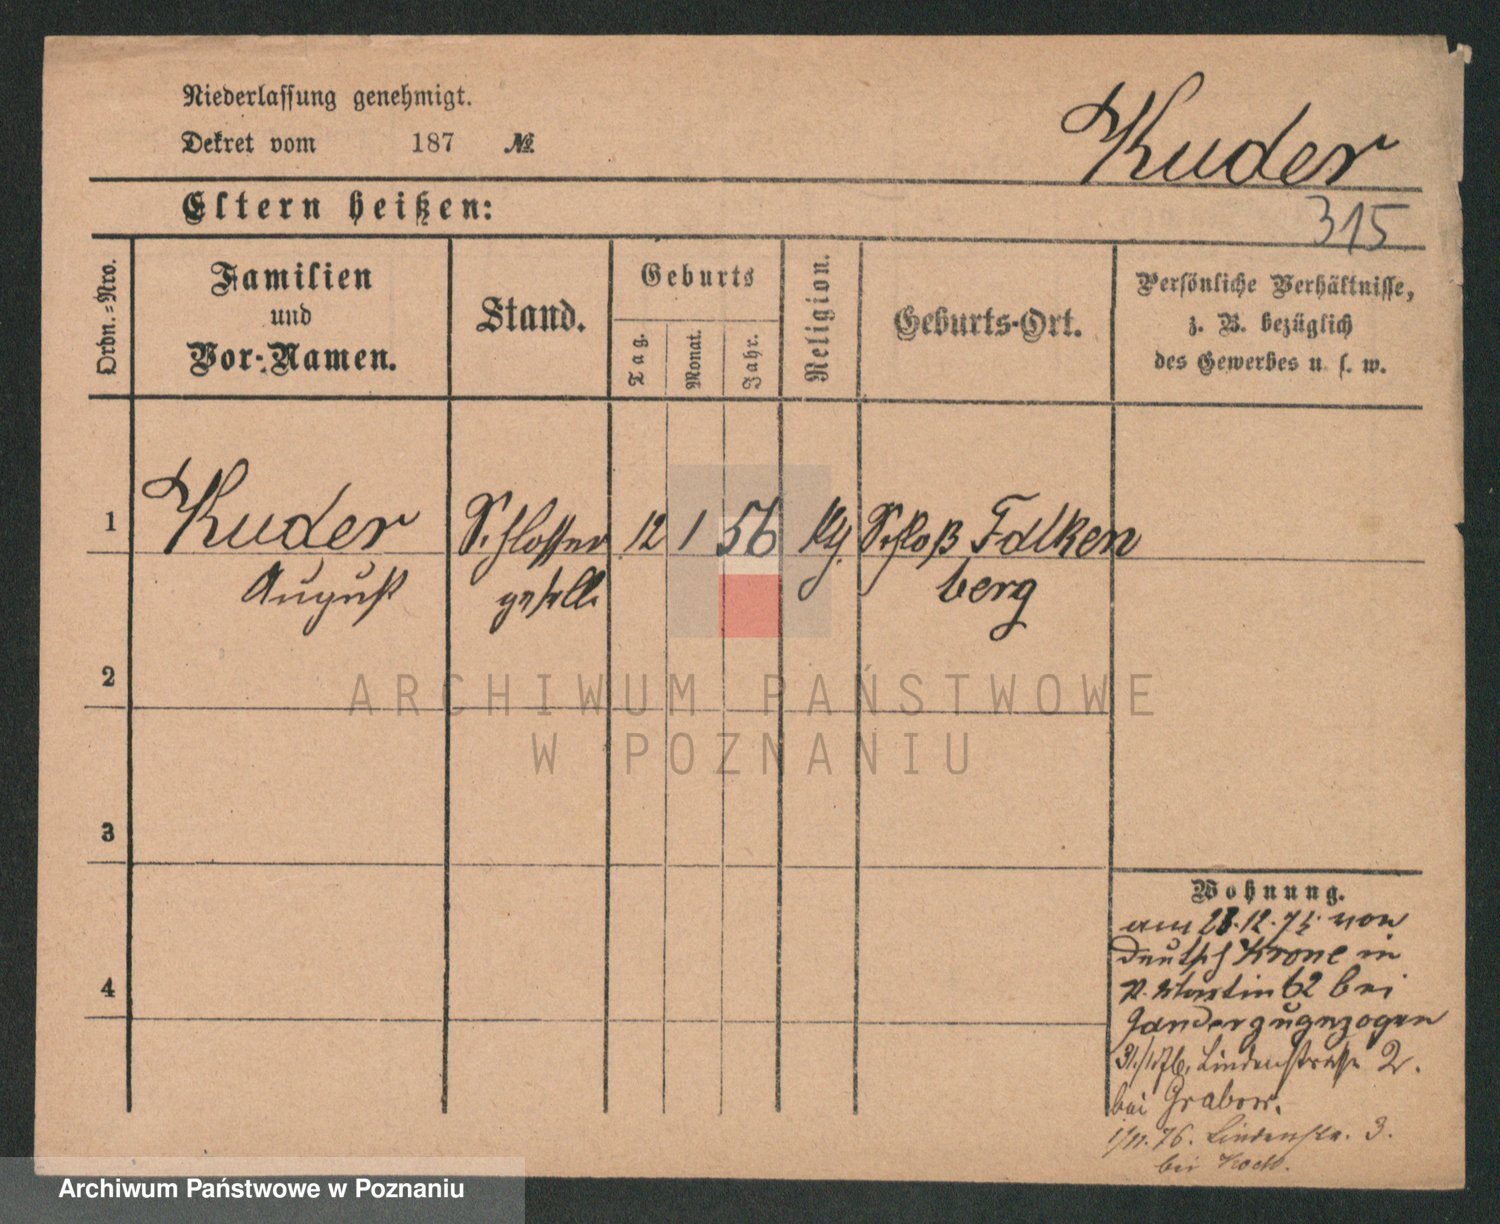 Niederlassung genehmigt.
Dekret vom 187 №
Kuder
Eltern heißen:
315
Ordn.-Nro.
Familien
und
Vor-Namen.
Stand.
Geburts
Tag.
Monat.
Jahr.
Religion.
Geburts-Ort.
Persönliche Verhältnisse,
z. B. bezüglich
des Gewerbes u. s. w.
1
Kuder Schlosser 12 1 56 Schloß Falken
August gesell berg
2
ARCHIWUM PAŃSTWOWE
W POZNANIU
3
4
Wohnung.
am 28.12.75 von
Deutsch Krone in
St. Martin 62 bei
Gander zugezogen
Lindenstraße 2.
bei Grabow.
1/11.76. Lindenstr. 3.
bei Koch.
Archiwum Państwowe w Poznaniu